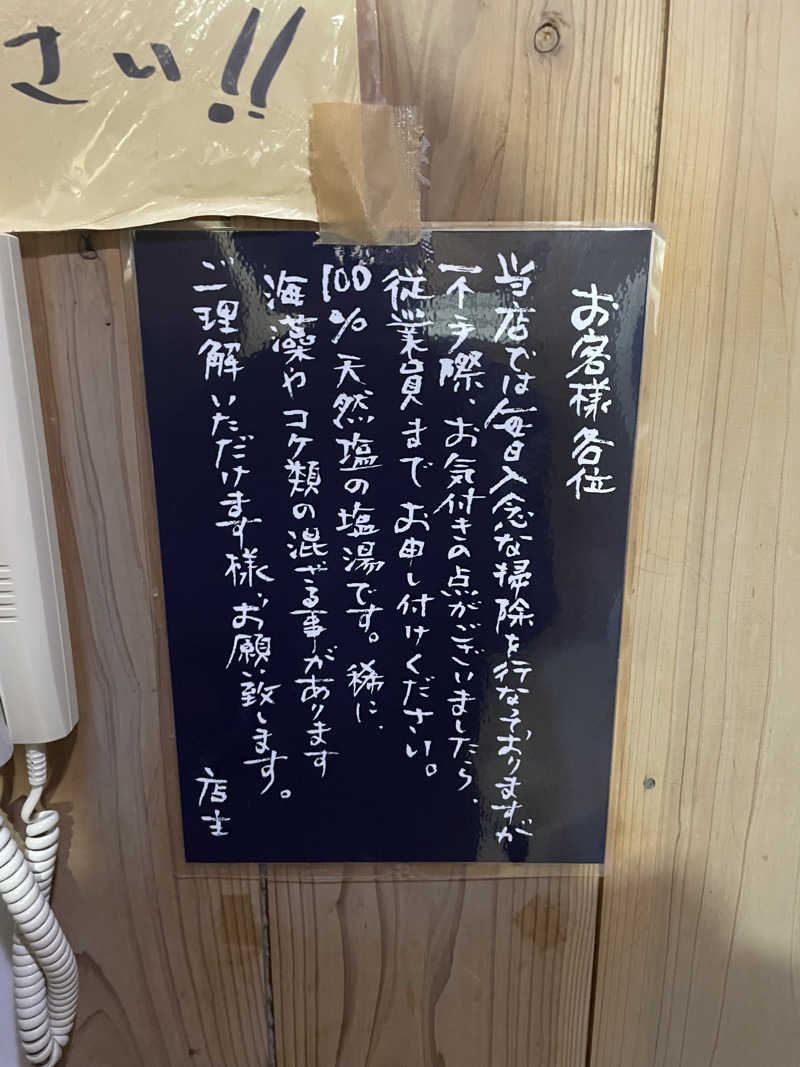 さい!!
お客様各位
当店では毎日入念な掃除を行なっておりますが
一イチ際、お気付きの点がございましたら、
従業員までお申し付けください。
100%天然塩の塩湯です。稀に、
海藻やコケ類の混ざる事があります
ご理解いただけます様、お願い致します。
店主